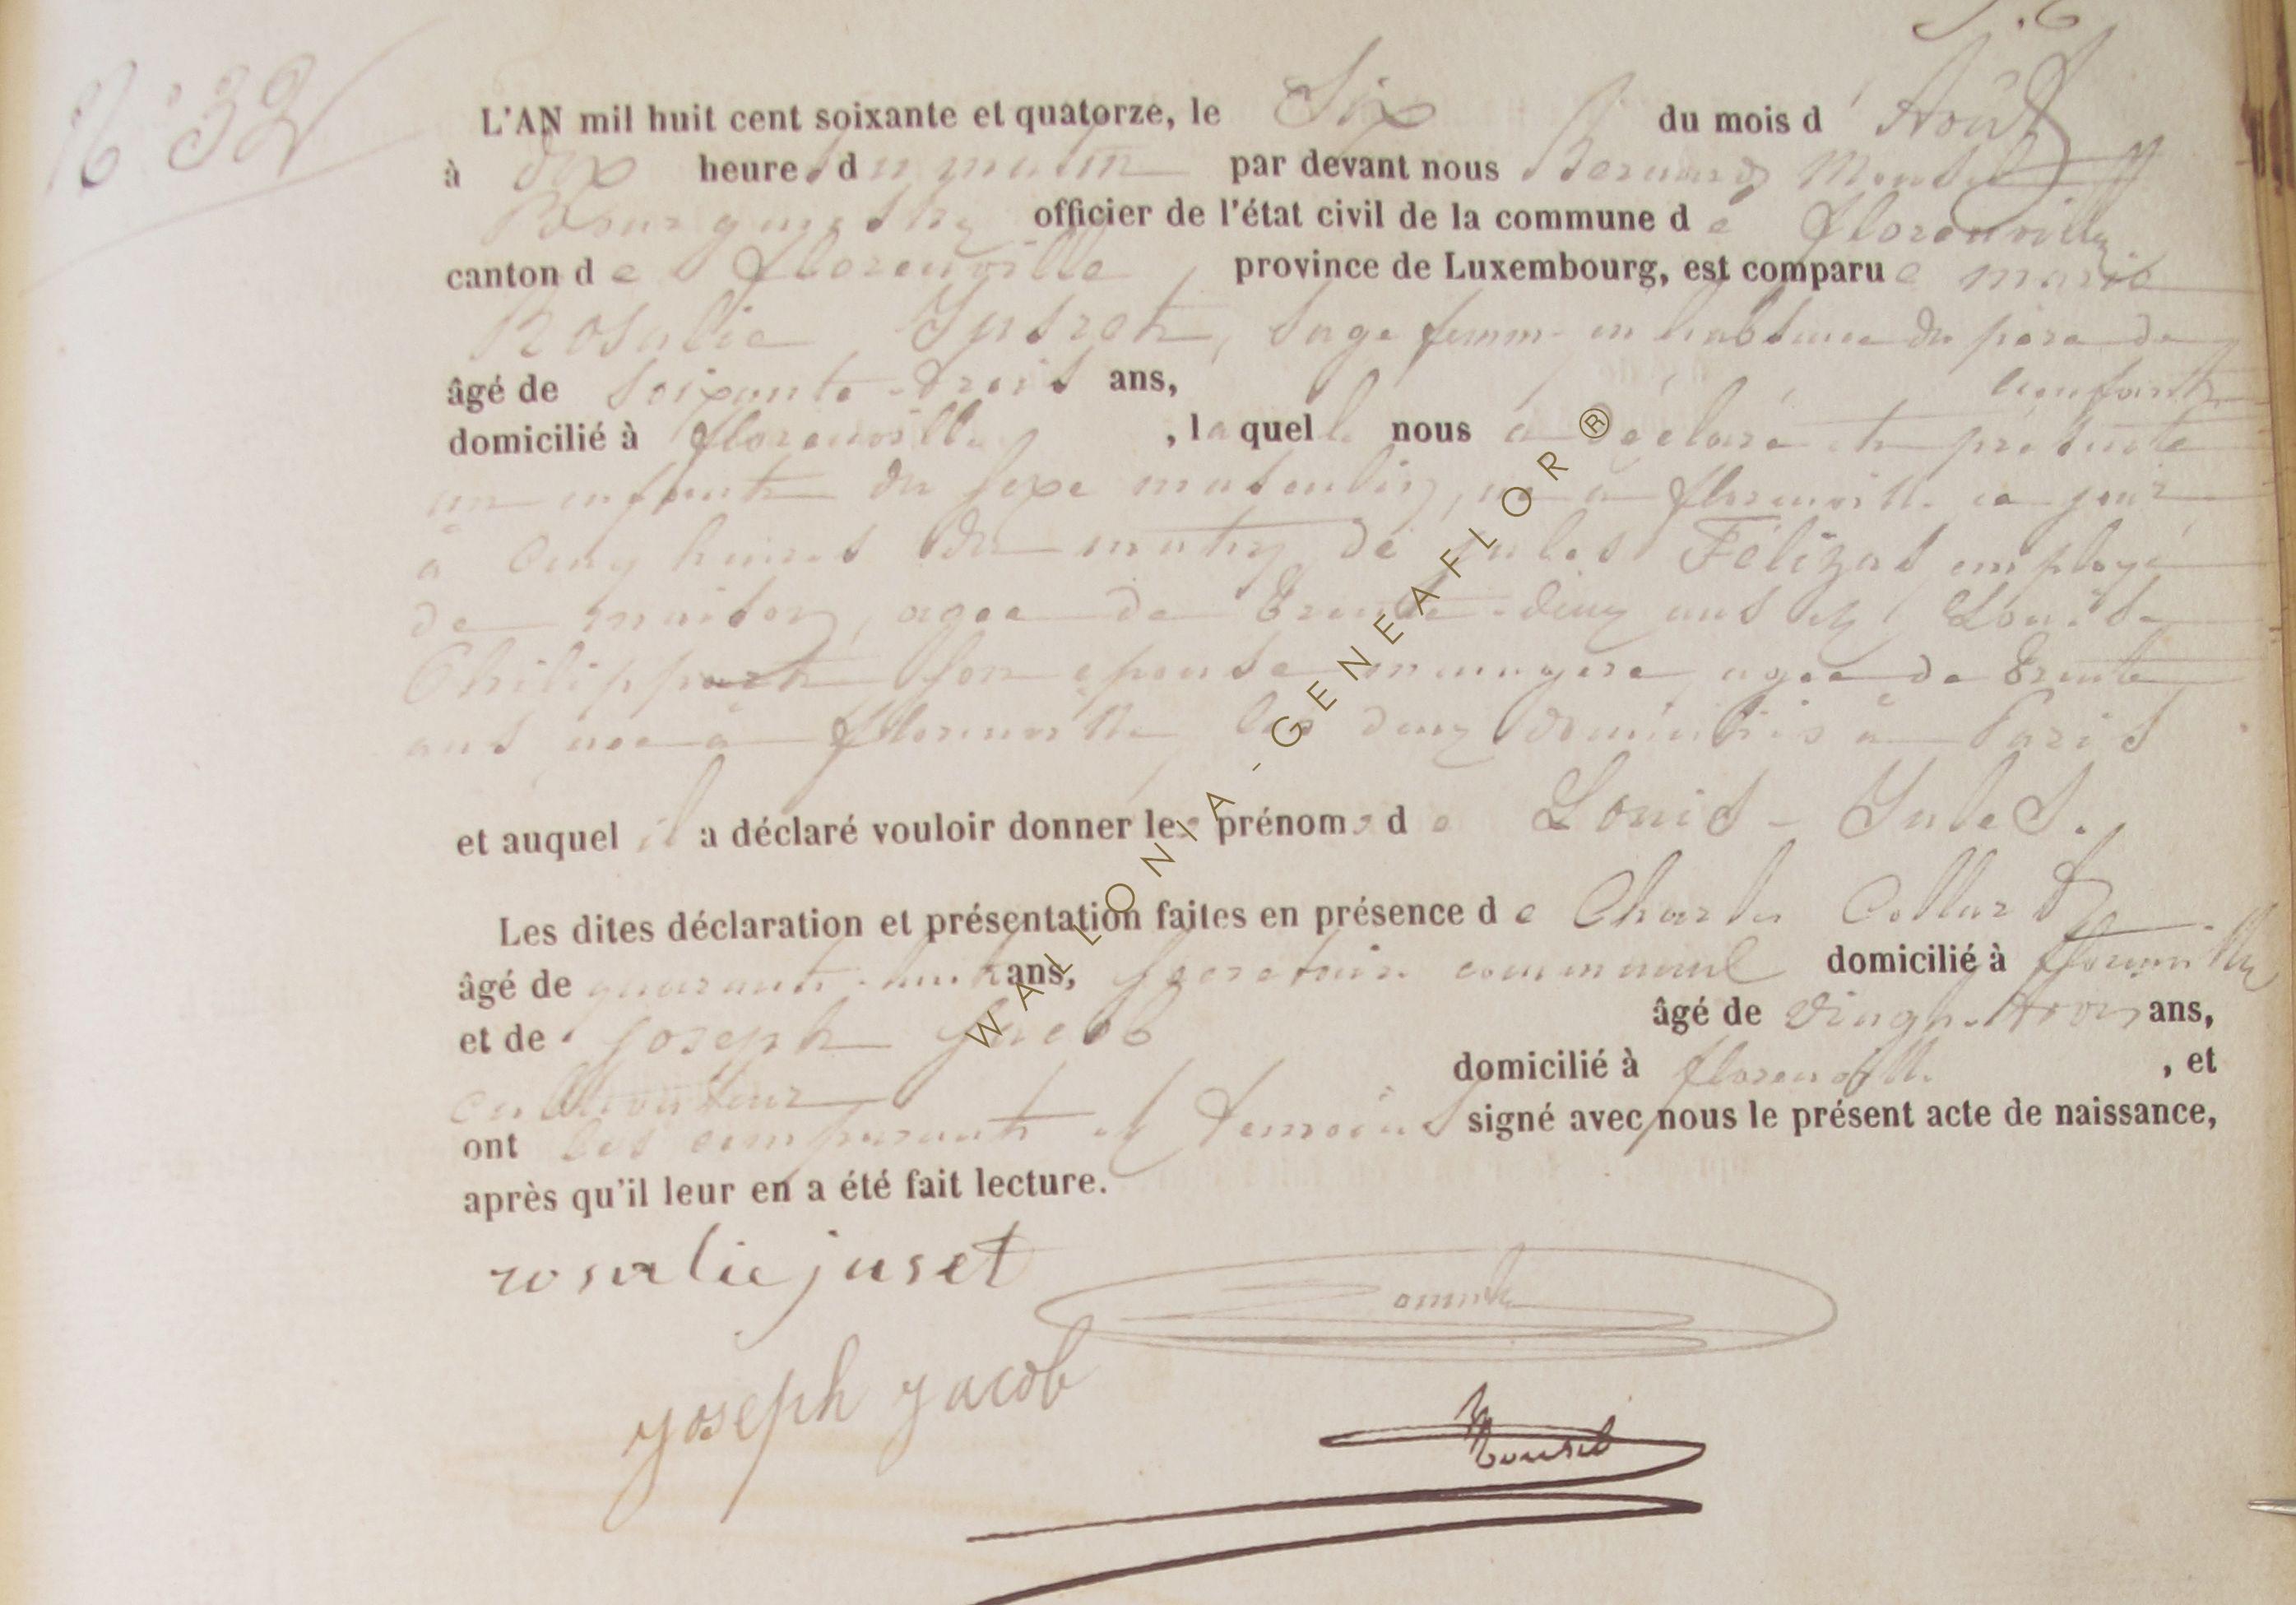 N° 32
L'AN mil huit cent soixante et quatorze, le Six du mois d'Août
à dix heures du matin par devant nous Bernard Mousel
Bourgmestre officier de l'état civil de la commune de florenville
canton de florenville, province de Luxembourg, est comparue marie
Rosalie Jusret, sage femme en l'absence du père de
l'enfant
âgé de soixante-trois ans,
domicilié à florenville, laquelle nous a déclaré et présenté
un enfant du sexe masculin, né à florenville ce jour
à cinq heures du matin de jules Félizat employé
de maison, agée de trente-deux ans et Louise
Philippart son epouse menagère, agée de trente
ans née à florenville les deux domiciliés à Paris
et auquel il a déclaré vouloir donner les prénoms de Louis-Jules.
Les dites déclaration et présentation faites en présence de Charles Collard
âgé de quarante-huit ans, secretaire communal domicilié à florenville
et de Joseph Jacob âgé de vingt-trois ans,
cultivateur domicilié à florenville, et
ont les comparant et temoins signé avec nous le présent acte de naissance,
après qu'il leur en a été fait lecture.
rosalie juset
joseph jacob
Mousel
WALLONIA-GENEAFLOR®